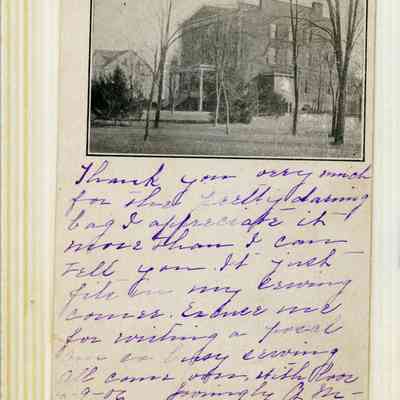 Thank you very much
for the pretty darning
bag I appreciate it
more than I can
tell you. It just
fits in my sewing
corner. Excuse me
for writing a postal
am so busy sewing
all come over, with love
Lovingly